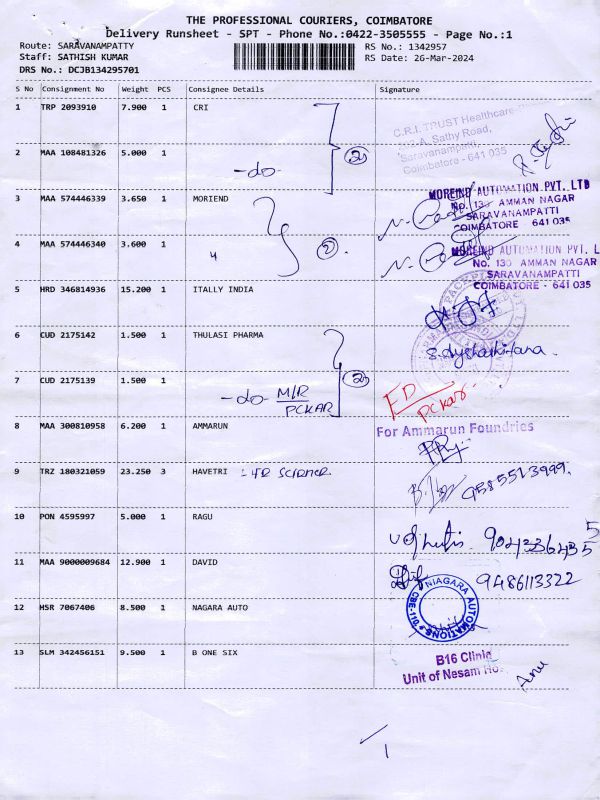 THE PROFESSIONAL COURIERS, COIMBATORE
Delivery Runsheet - SPT - Phone No.:0422-3505555 - Page No.:1
Route: SARAVANAMPATTY RS No.: 1342957
Staff: SATHISH KUMAR RS Date: 26-Mar-2024
DRS No.: DCJB134295701
S No Consignment No Weight PCS Consignee Details Signature
1 TRP 2093910 7.900 1 CRI
C.R.I. TRUST Healthcare
Sathy Road,
Saravanampatti,
Coimbatore - 641 035
2 MAA 108481326 5.000 1 -do- 2
3 MAA 574446339 3.650 1 MORIEND
MOREIND AUTOMATION PVT. LTD
No. 130 AMMAN NAGAR
SARAVANAMPATTI
COIMBATORE - 641 035
4 MAA 574446340 3.600 1 " 2
MOREIND AUTOMATION PVT. L
No. 130 AMMAN NAGAR
SARAVANAMPATTI
COIMBATORE - 641 035
5 HRD 346814936 15.200 1 ITALLY INDIA
6 CUD 2175142 1.500 1 THULASI PHARMA
7 CUD 2175139 1.500 1 -do- M/R PCKAR 2
FD
PCKar
8 MAA 300810958 6.200 1 AMMARUN
For Ammarun Foundries
9 TRZ 180321059 23.250 3 HAVETRI : LFR SCIENCE
9585513999.
10 PON 4595997 5.000 1 RAGU
9042364355
11 MAA 9000009684 12.900 1 DAVID
9486113322
12 HSR 7067406 8.500 1 NAGARA AUTO
NIAGARA AUTOMATIONS
CBE-110
13 SLM 342456151 9.500 1 B ONE SIX
B16 Clinic
Unit of Nesam Ho
Anu